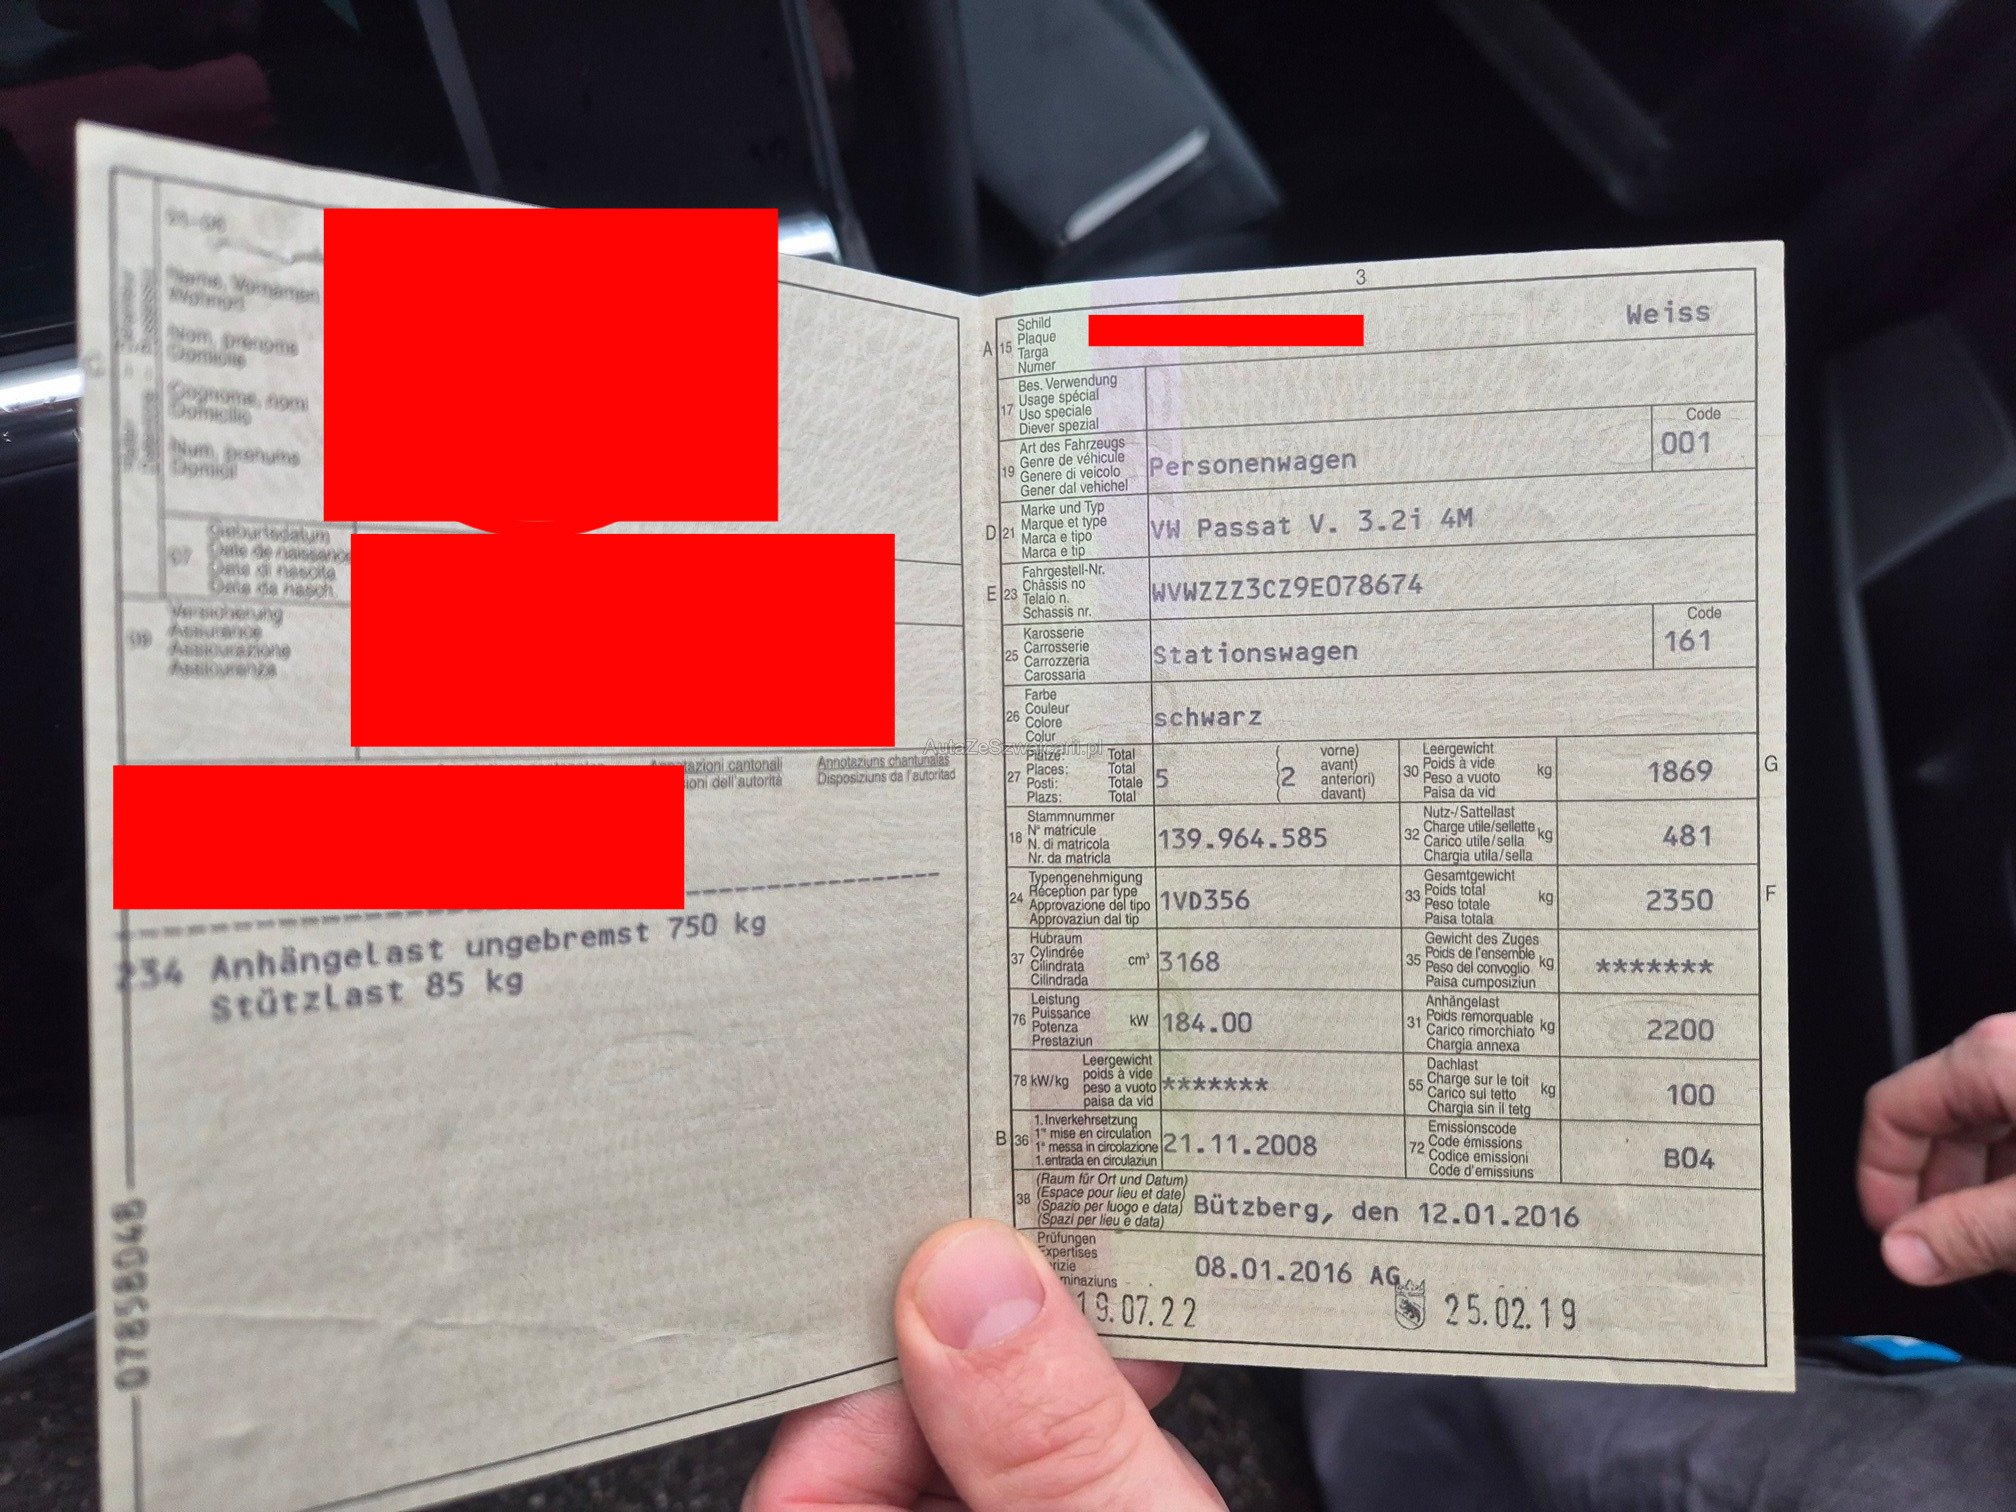 Name, Vornamen
Wohnort
Nom, prénoms
Domicile
Cognome, nomi
Domicilio
Num, prenums
Domicil
07
Geburtsdatum
Date de naissance
Data di nascita
Data da nasch.
09
Versicherung
Assurance
Assicurazione
Assicuranza
Annotaziuns chantunalas
Disposiziuns da l'autoritad
234 Anhängelast ungebremst 750 kg
Stützlast 85 kg
07858048
3
A 15
Schild
Plaque
Targa
Numer
Weiss
17
Bes. Verwendung
Usage spécial
Uso speciale
Diever spezial
19
Art des Fahrzeugs
Genre de véhicule
Genere di veicolo
Gener dal vehichel
Personenwagen
Code
001
D 21
Marke und Typ
Marque et type
Marca e tipo
Marca e tip
VW Passat V. 3.2i 4M
E 23
Fahrgestell-Nr.
Châssis no
Telaio n.
Schassis nr.
WVWZZZ3CZ9E078674
25
Karosserie
Carrosserie
Carrozzeria
Carossaria
Stationswagen
Code
161
26
Farbe
Couleur
Colore
Colur
schwarz
AutaZeSzwajcarii.pl
27
Plätze: Total
Places: Total
Posti: Totale
Plazs: Total
5
(2
vorne)
avant)
anteriori)
davant)
30
Leergewicht
Poids à vide
Peso a vuoto
Paisa da vid
kg
1869
G
18
Stammnummer
N° matricule
N. di matricola
Nr. da matricla
139.964.585
32
Nutz-/Sattellast
Charge utile/sellette
Carico utile/sella
Chargia utila/sella
kg
481
24
Typengenehmigung
Réception par type
Approvazione del tipo
Approvaziun dal tip
1VD356
33
Gesamtgewicht
Poids total
Peso totale
Paisa totala
kg
2350
F
37
Hubraum
Cylindrée
Cilindrata
Cilindrada
cm³
3168
35
Gewicht des Zuges
Poids de l'ensemble
Peso del convoglio
Paisa cumposiziun
kg
*******
76
Leistung
Puissance
Potenza
Prestaziun
kW
184.00
31
Anhängelast
Poids remorquable
Carico rimorchiato
Chargia annexa
kg
2200
78 kW/kg
Leergewicht
poids à vide
peso a vuoto
paisa da vid
*******
55
Dachlast
Charge sur le toit
Carico sul tetto
Chargia sin il tetg
kg
100
B 36
1. Inverkehrsetzung
1re mise en circulation
1a messa in circolazione
1. entrada en circulaziun
21.11.2008
72
Emissionscode
Code émissions
Codice emissioni
Code d'emissiuns
B04
38
(Raum für Ort und Datum)
(Espace pour lieu et date)
(Spazio per luogo e data)
(Spazi per lieu e data)
Bützberg, den 12.01.2016
Prüfungen
Expertises
08.01.2016 AG
19.07.22
25.02.19